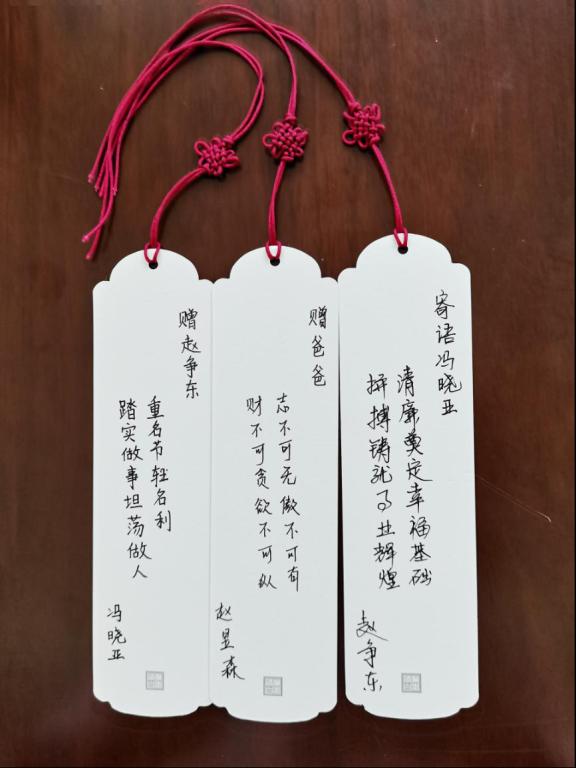 寄语冯晓亚
清廉奠定幸福基础
拼搏铸就事业辉煌
赵争东
赠爸爸
志不可无傲不可有
财不可贪欲不可纵
赵昱森
赠赵争东
重名节轻名利
踏实做事坦荡做人
冯晓亚